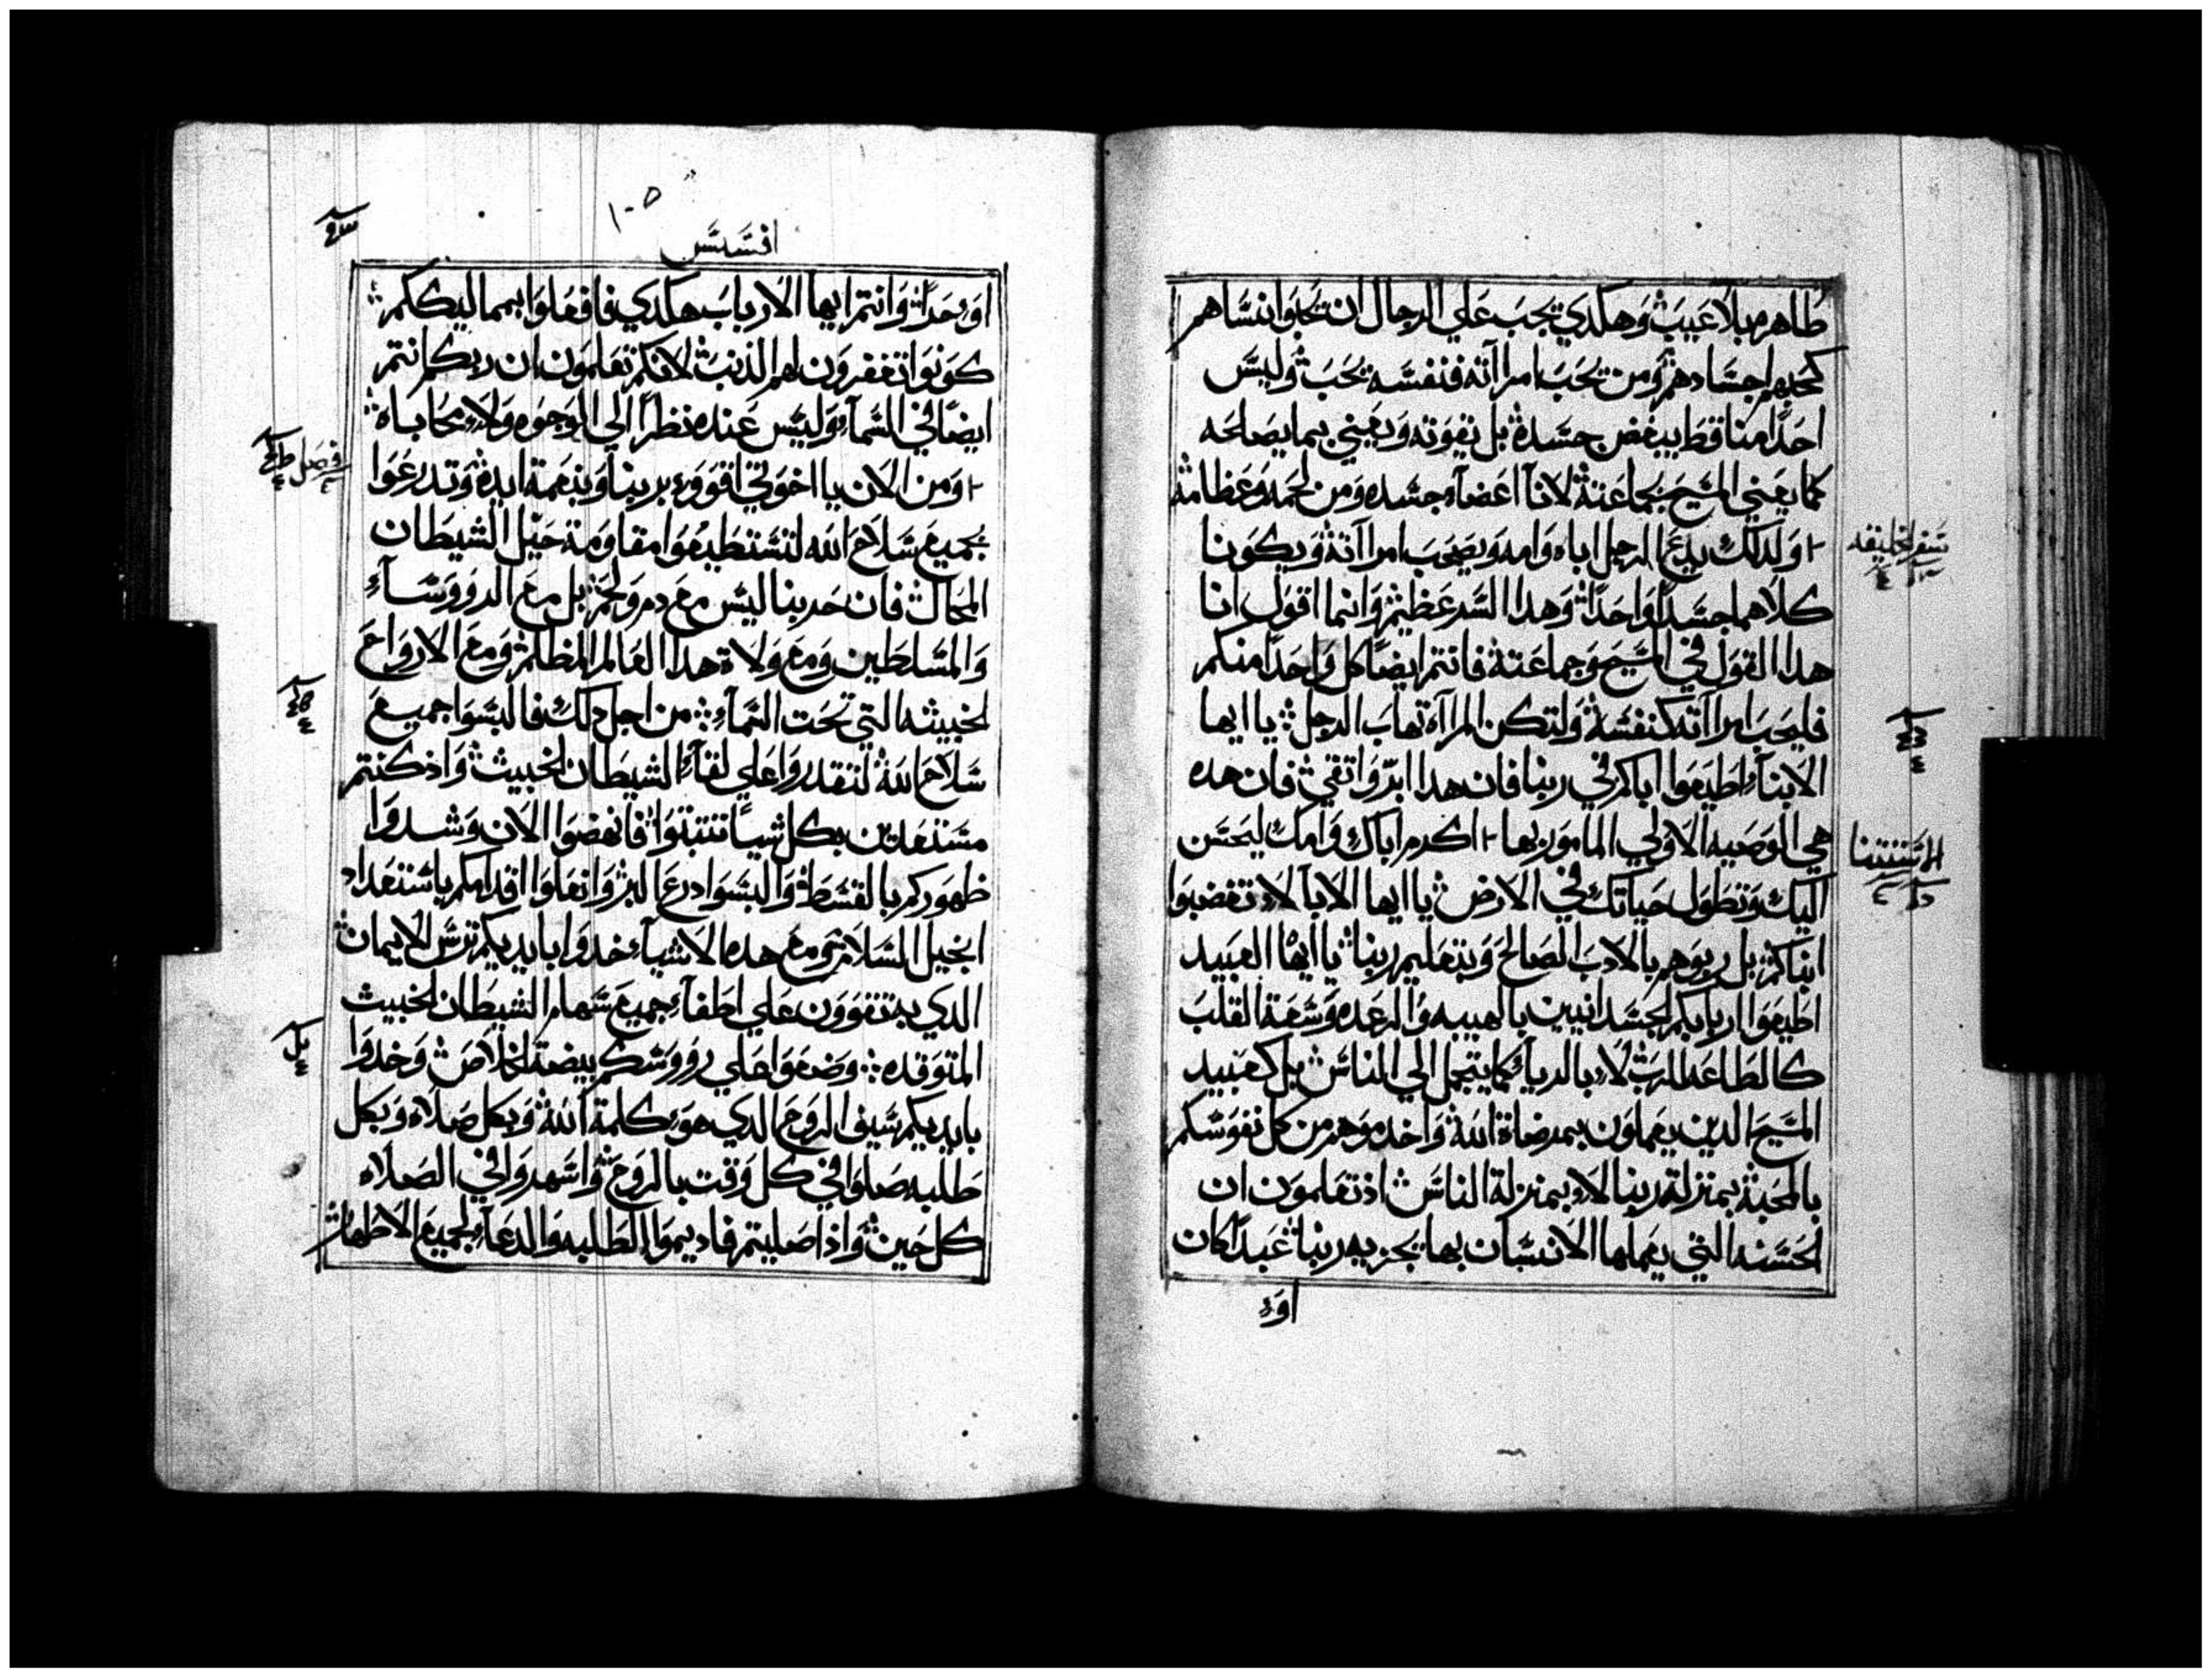 طاهره بلا عيب وهكدي تجب علي الرجال ان تحبوا نساهم
كحبهم اجسادهم ومن يحب امراآته فنفسه يحب وليس
احدًا منا قط يبغض جسده بل يقوته ويعني بما يصالحه
كما يعني المسيح بجماعته لانا اعضآء جسده ومن لحمه وعظامه
ولدلك يدع الرجل اباه وامه ويصحب امراآته ويكونا
كلاهما جسدًا واحدًا وهدا السر عظيم وانما اقول انا
هدا القول في المسيح وجماعته فانتم ايضًا كل واحدًا منكم
فليحب امراآته كنفسه ولتكن المراآه تهاب الرجل يا ايها
الابنآء اطيعوا اباكم في ربنا فان هدا ابرّ واتقي فان هده
هي الوصيه الاولي المامور بها اكرم اباك وامك ليحسن
اليك وتطول حياتك في الارض يا ايها الابآ لا تغضبوا
ابناكم بل ربوهم بالادب الصالح وبتعليم ربنا يا ايها العبيد
اطيعوا اربابكم الجسدانيين بالهيبه والرعده وسعة القلب
كالطاعه للرب لا بالريآء كما يتجمل الي الناس بل كعبيد
المسيح الدين يعملون بمرضاة الله واخدموهم من كل نفوسكم
بالمحبه بمنزلة ربنا لا بمنزلة الناس اذ تعلمون ان
الحسنه التي يعملها الانسان بها يجزيه ربنا عبدًا كان
اوء
سفر الخليقه
افسس
اوء حرًا وانتم ايها الارباب هكدي فافعلوا بهم اليكم
كونوا تغفرون لهم الذنب لانكم تعلمون ان ربكم انتم
ايضًا في السمآء وليس عنده نظرًا الي الوجوه ولا محاباه
ومن الان يا اخوتي اقووء بربنا وبنعمة ايده وتدرعوا
بجميع سلاح الله لتستطيعوا مقاومة حيل الشيطان
المحال فان حربنا ليس مع دم ولحم بل مع الروسآء
والمسلطين ومع ولاة هدا العالم المظلم ومع الارواح
الخبيثه التي تحت السمآء من اجل دلك فالبسوا جميع
سلاح الله لتقدروا علي لقآء الشيطان الخبيث واذ كنتم
مستعدين بكل شيًا تتبتوا فانهضوا الان وشدوا
ظهوركم بالقسط والبسوا درع البر وانعلوا اقدامكم باستعداد
انجيل السلام ومع هده الاشيآء خدوا بايديكم ترس الايمان
الدي به تقوون علي اطفآء جميع سهام الشيطان الخبيث
المتوقده وضعوا علي رووسكم بيضة الخلاص وخدوا
بايديكم سيف الروح الدي هوء كلمة الله وبكل صلاه وبكل
طلبه صلوا في كل وقت بالروح واسهروا في الصلاه
كل حين واذا صليتم فاديموا الطلبه والدعآء لجميع الاطهار